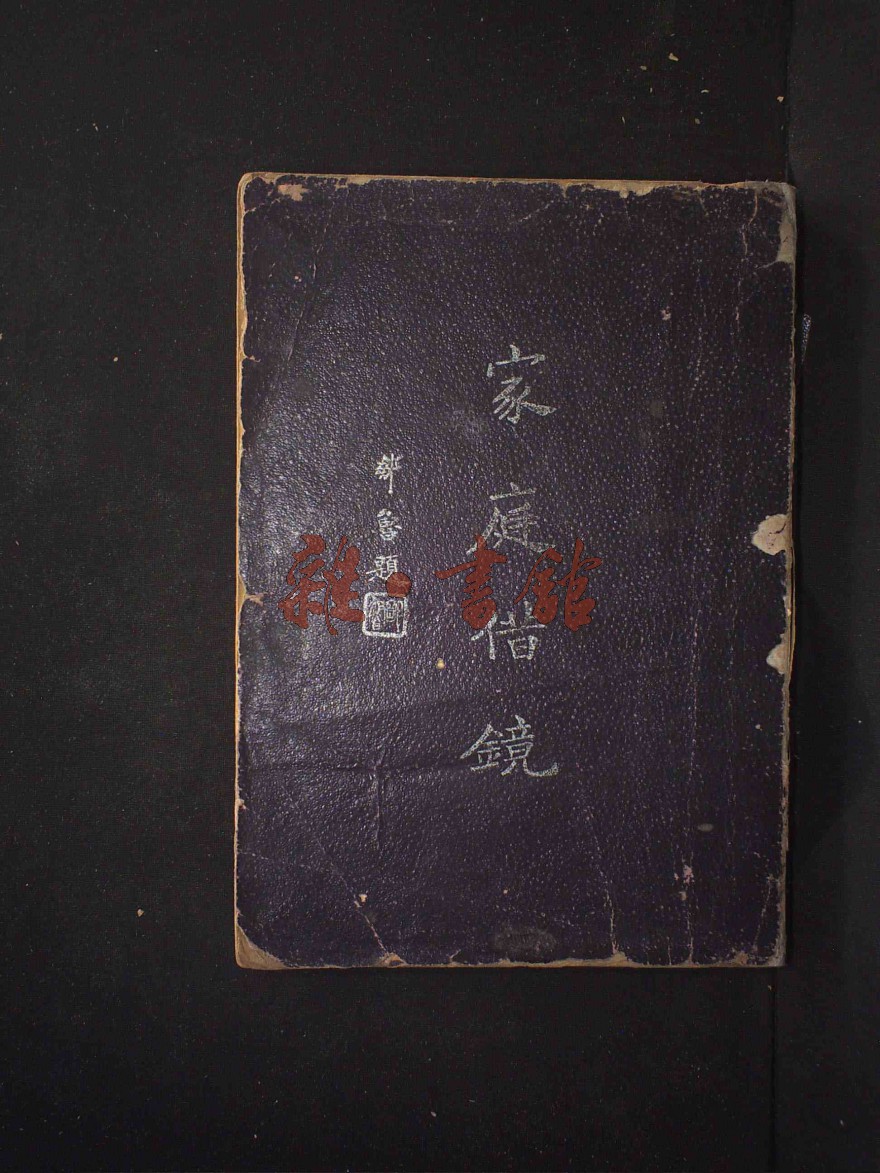 家庭借鏡
魯題
雜·書館